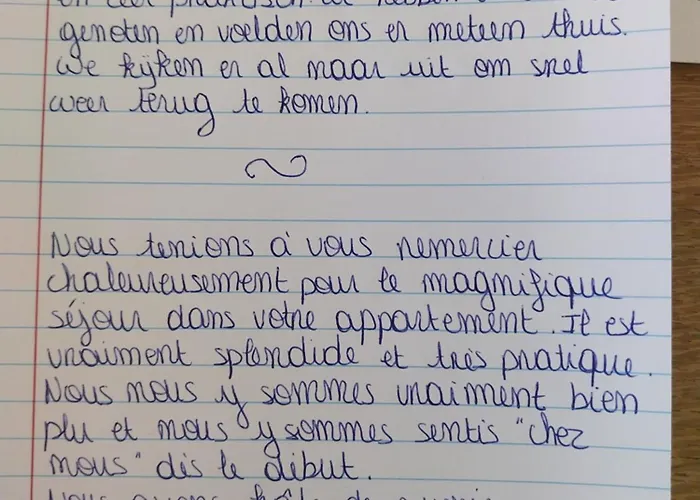 genoten en voelden ons er meteen thuis.
We kijken er al maar uit om snel
weer terug te komen.
Nous tenions à vous remercier
chaleureusement pour le magnifique
séjour dans votre appartement. Il est
vraiment splendide et très pratique.
Nous nous y sommes vraiment bien
plu et nous y sommes sentis "chez
nous" dès le début.